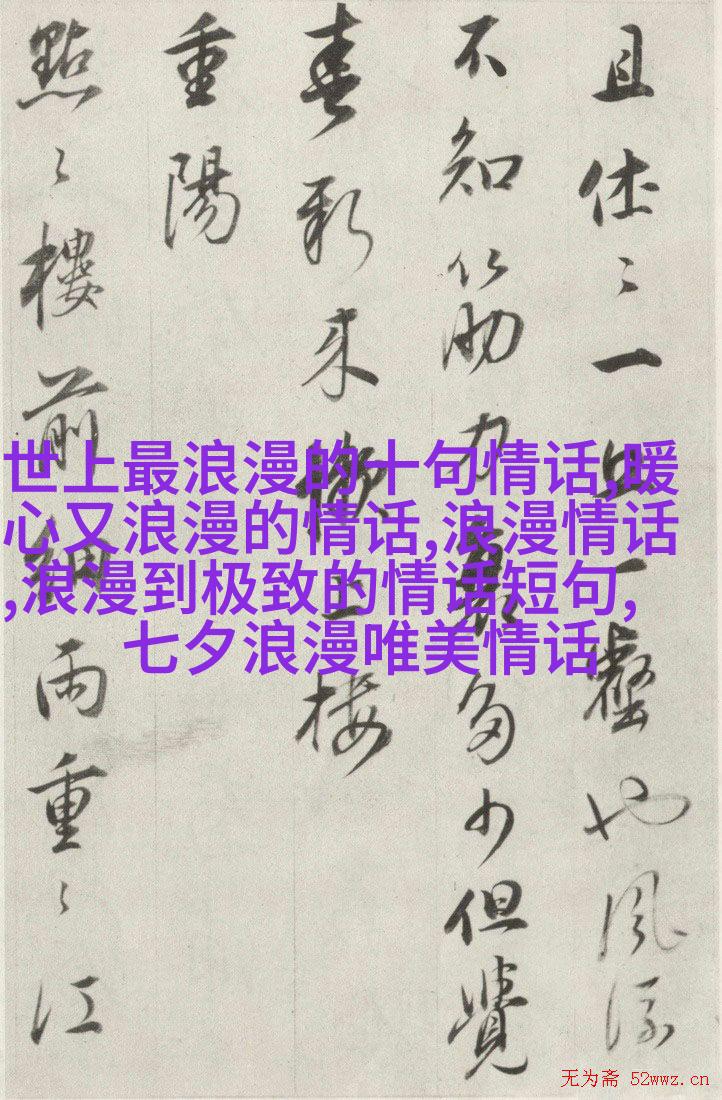 且休〻一丘一壑也風流
不知筋力衰多少但覺
春新来懶上楼
重陽
點〻樓前細雨重〻江
世上最浪漫的十句情话,暖
心又浪漫的情话,浪漫情话
,浪漫到极致的情话短句,
七夕浪漫唯美情话
无为斋 52wwz.cn